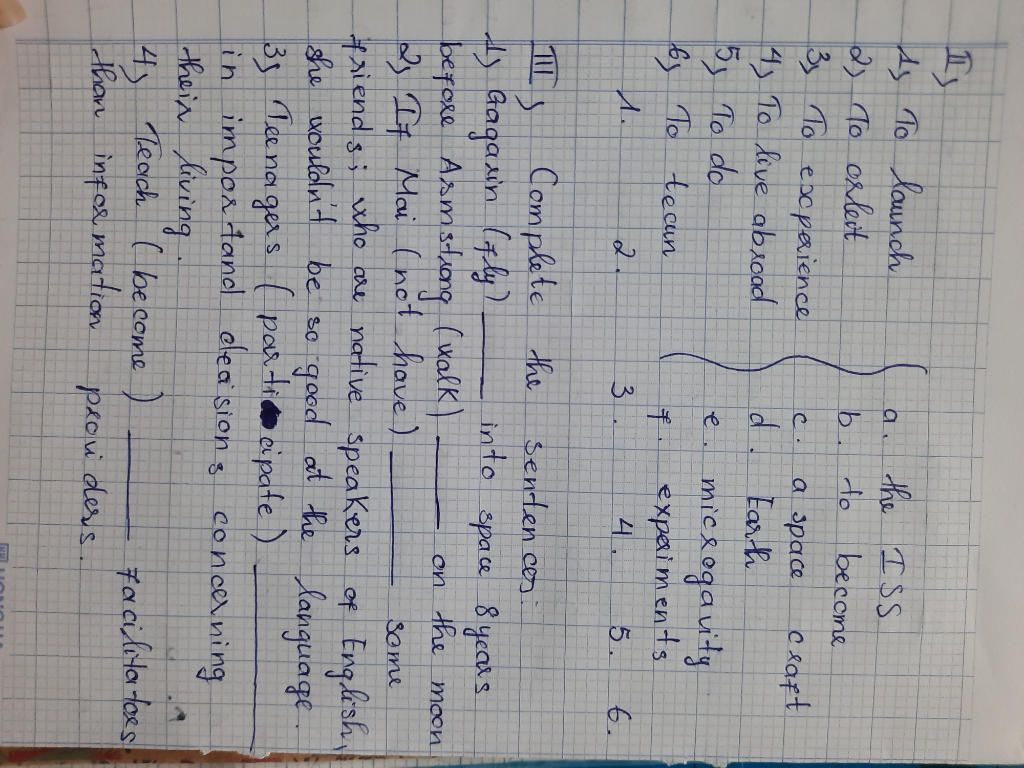 II)
1) To launch a. the ISS
2) To orbit b. to become
3) To expeience c. a space craft
4) To live abroad d. Earth
5) To do e. microgavity
6) To tean f. expeiments
1. 2. 3. 4. 5. 6.
III) Complete the sentences:
1) Gagarin (fly) ____ into space 8 years
before Armstrong (walk) ____ on the moon
2) If Mai (not have) ____ some
friends; who are native speakers of English,
she wouldn't be so good at the language.
3) Teenagers (participate) ____
in importand deasions concerning
their living.
4) Teach (become) ____ facilitators
than information providers.